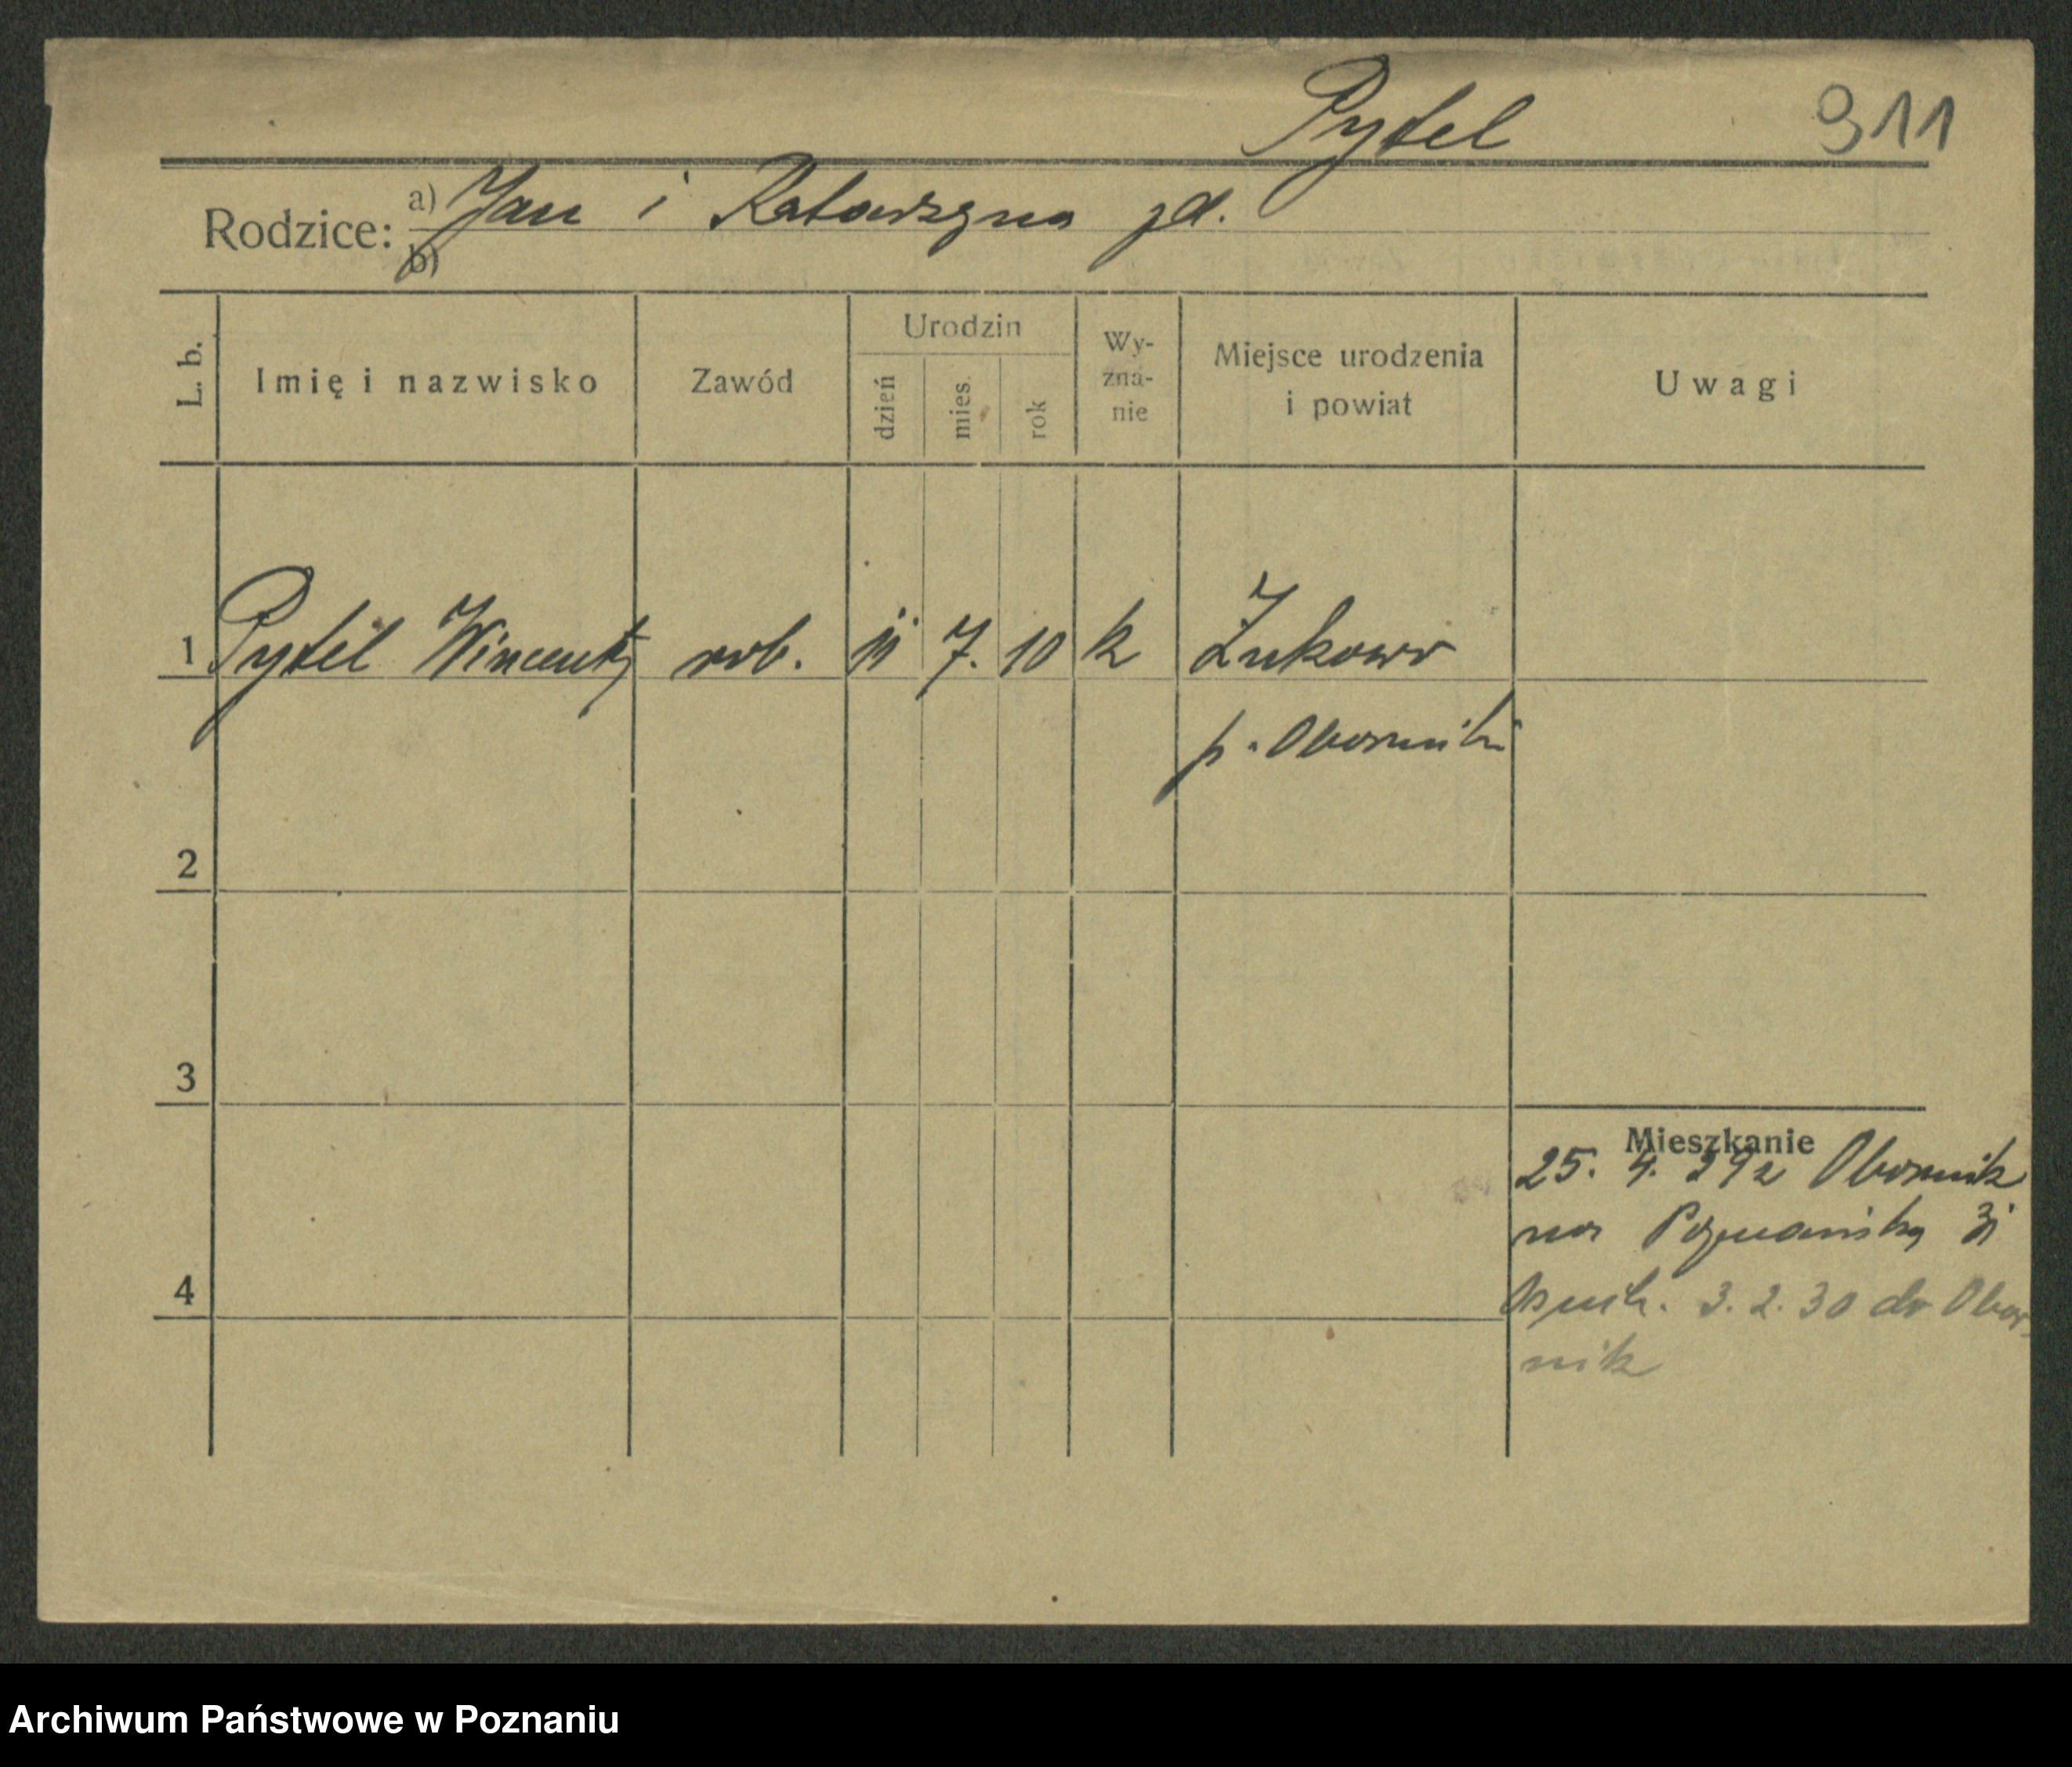 Pytel 911
Rodzice: a) Jan i Katarzyna jd.
b)
L. b.
Imię i nazwisko
Zawód
Urodzin
dzień
mies.
rok
Wy-
zna-
nie
Miejsce urodzenia
i powiat
Uwagi
1 Pytel Wincenty rob. 11 7. 10 k Żukowo
p. Oborniki
2
3
4
Mieszkanie
25. 4. 29 z Obornik
na Poznańską
3. 2. 30 do Obor-
nik
Archiwum Państwowe w Poznaniu